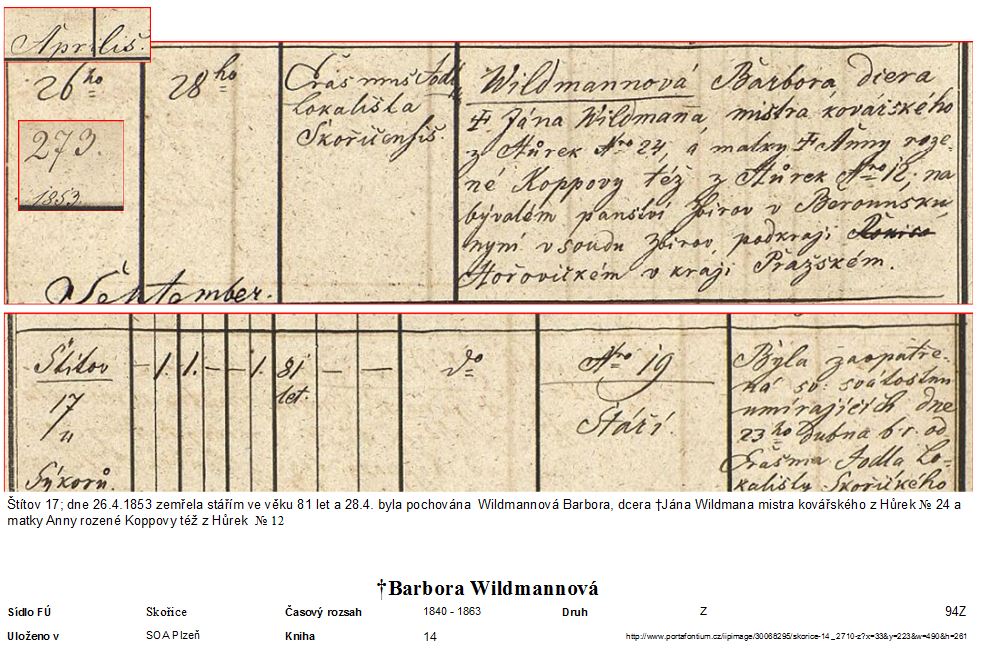 Aprilis.
26ho
28ho
273.
1853.
Erasmus Jodl
Lokalista
Skořicensis.
Wildmannová Barbora, dcera
†. Jána Wildmana, mistra kovářského
z Hůrek Nro 24, a matky †. Anny roze-
né Koppovy též z Hůrek Nro 12; na
bývalém panství Zbirov v Berounsku
nyní v soudu Zbirov, podkrají
Hořovickém v kraji Pražském.
September.
Štítov
17
Sýkorů.
— 1. 1. — — 1. 81 — —
let.
do
Nro 19
Stáří.
Byla zaopatře-
ná sv. svátostmi
umírajících dne
23ho Dubna b. r. od
Erasma Jodla Lo-
kalisty Skořického
Štítov 17; dne 26.4.1853 zemřela stářím ve věku 81 let a 28.4. byla pochována Wildmannová Barbora, dcera †Jána Wildmana mistra kovářského z Hůrek № 24 a
matky Anny rozené Koppovy též z Hůrek № 12
†Barbora Wildmannová
Sídlo FÚ Skořice Časový rozsah 1840 - 1863 Druh Z 94Z
Uloženo v SOA Plzeň Kniha 14 http://www.portafontium.cz/iipimage/30068295/skorice-14_2710-z?x=33&y=223&w=490&h=261